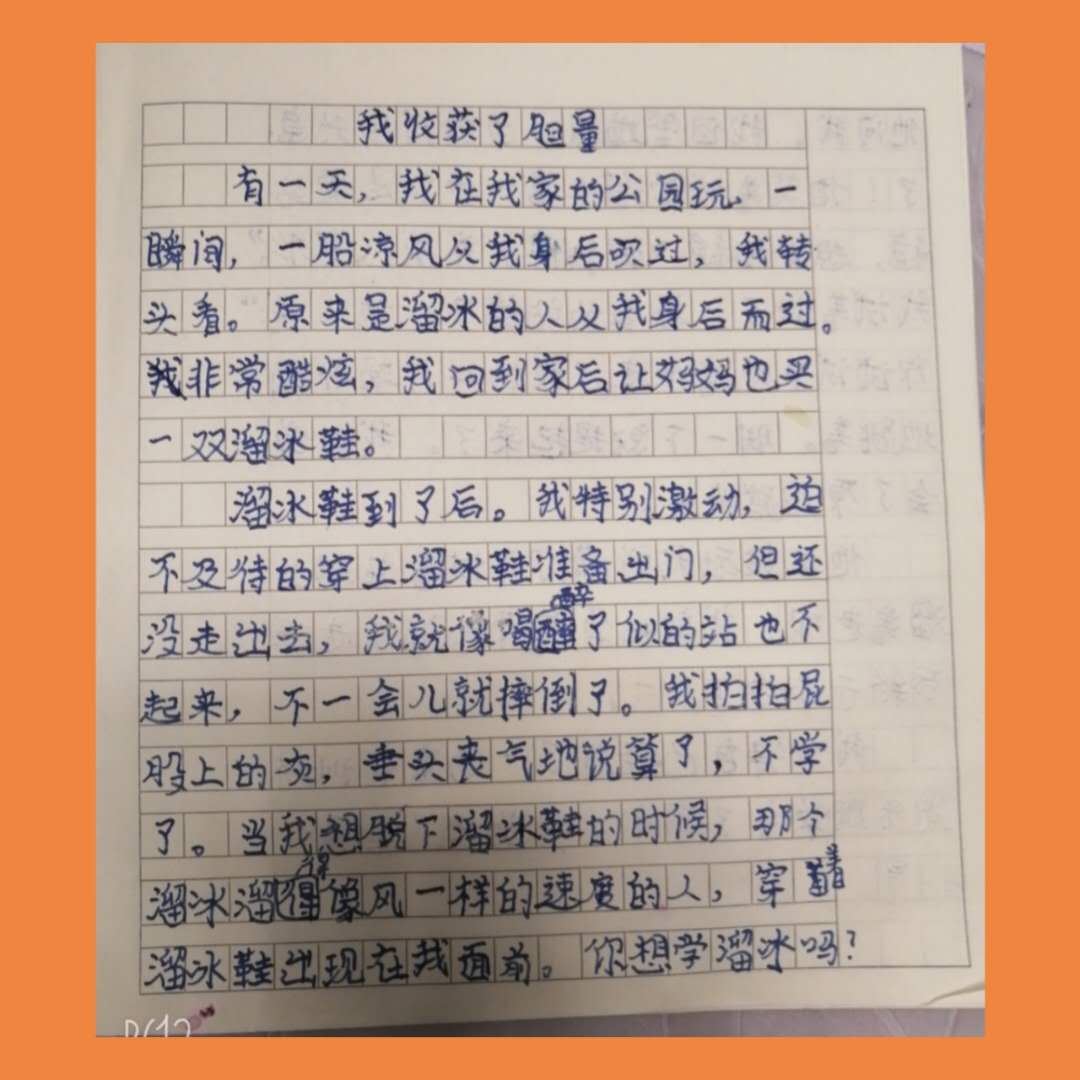 我收获了胆量
有一天，我在我家的公园玩，一
瞬间，一股凉风从我身后吹过，我转
头看。原来是溜冰的人从我身后而过。
我非常酷炫，我回到家后让妈妈也买
一双溜冰鞋。
溜冰鞋到了后。我特别激动，迫
不及待的穿上溜冰鞋准备出门，但还
没走出去，我就像喝醉了似的站也不
起来，不一会儿就摔倒了。我拍拍屁
股上的灰，垂头丧气地说算了，不学
了。当我想脱下溜冰鞋的时候，那个
溜冰溜得像风一样的速度的人，穿着
溜冰鞋出现在我面前。你想学溜冰吗？